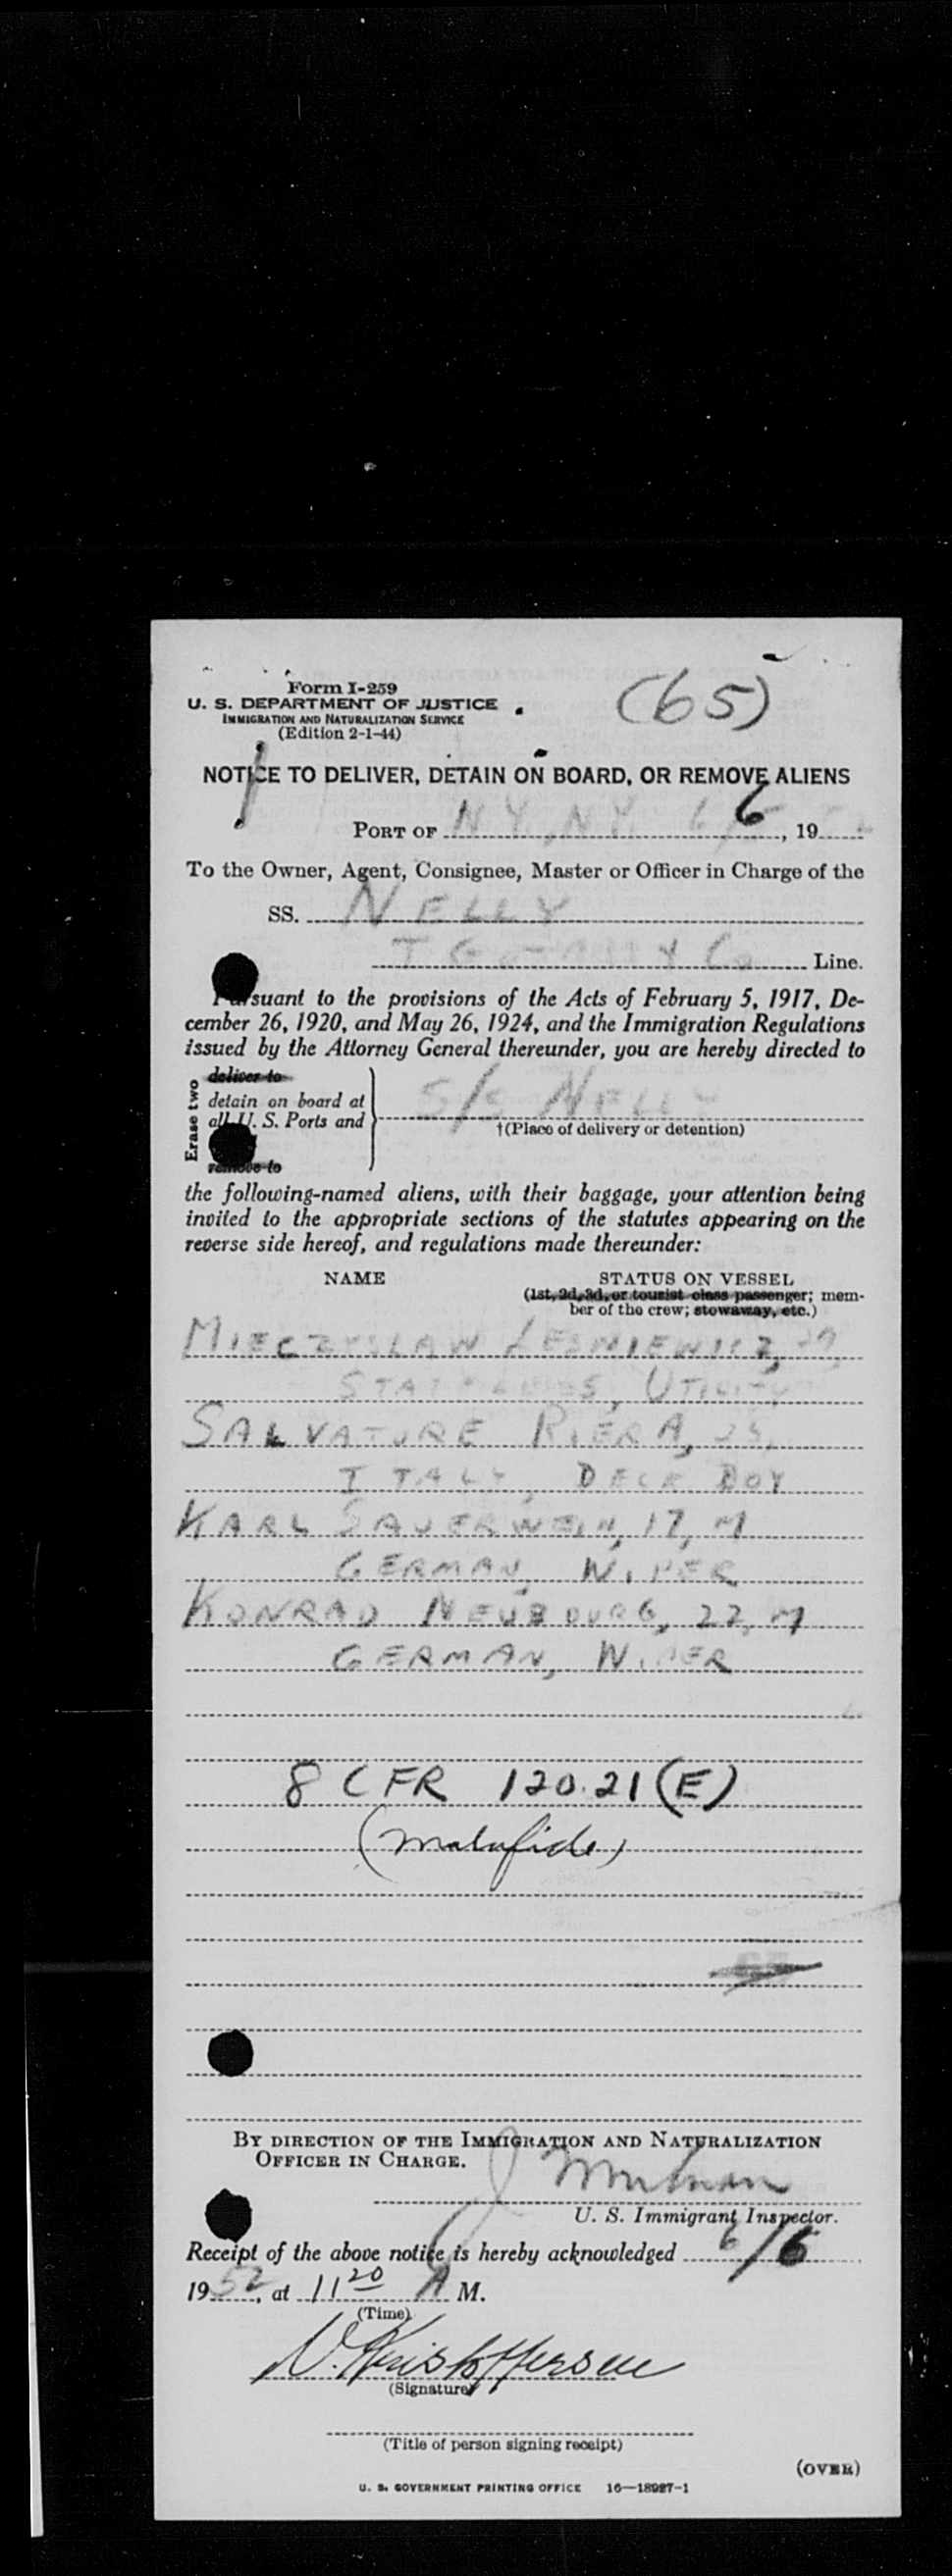 (65)
Form I-259
U. S. DEPARTMENT OF JUSTICE
IMMIGRATION AND NATURALIZATION SERVICE
(Edition 2-1-44)
NOTICE TO DELIVER, DETAIN ON BOARD, OR REMOVE ALIENS
PORT OF NY, NY 6/6, 19
To the Owner, Agent, Consignee, Master or Officer in Charge of the
SS. NELLY
Co Line.
Pursuant to the provisions of the Acts of February 5, 1917, De-
cember 26, 1920, and May 26, 1924, and the Immigration Regulations
issued by the Attorney General thereunder, you are hereby directed to
Erase two
deliver to
detain on board at
all U. S. Ports and
remove to
S/S NELLY
†(Place of delivery or detention)
the following-named aliens, with their baggage, your attention being
invited to the appropriate sections of the statutes appearing on the
reverse side hereof, and regulations made thereunder:
NAME STATUS ON VESSEL
(1st, 2d, 3d, or tourist class passenger; mem-
ber of the crew; stowaway, etc.)
MIECZYSLAW LESNIEWICZ,
STATELESS, UTILITY
SALVATORE RIERA,
ITALY, DECK BOY
KARL SAUERWEIN, 17, M
GERMAN, WIPER
KONRAD NEUBOURG, 22, M
GERMAN, WIPER
8 CFR 120.21(E)
(malafide)
BY DIRECTION OF THE IMMIGRATION AND NATURALIZATION
OFFICER IN CHARGE.
U. S. Immigrant Inspector.
Receipt of the above notice is hereby acknowledged 6/6
1952, at 11 20 A M.
(Time)
N. Kristoffersen
(Signature)
(Title of person signing receipt)
(OVER)
U. S. GOVERNMENT PRINTING OFFICE 16—18927-1